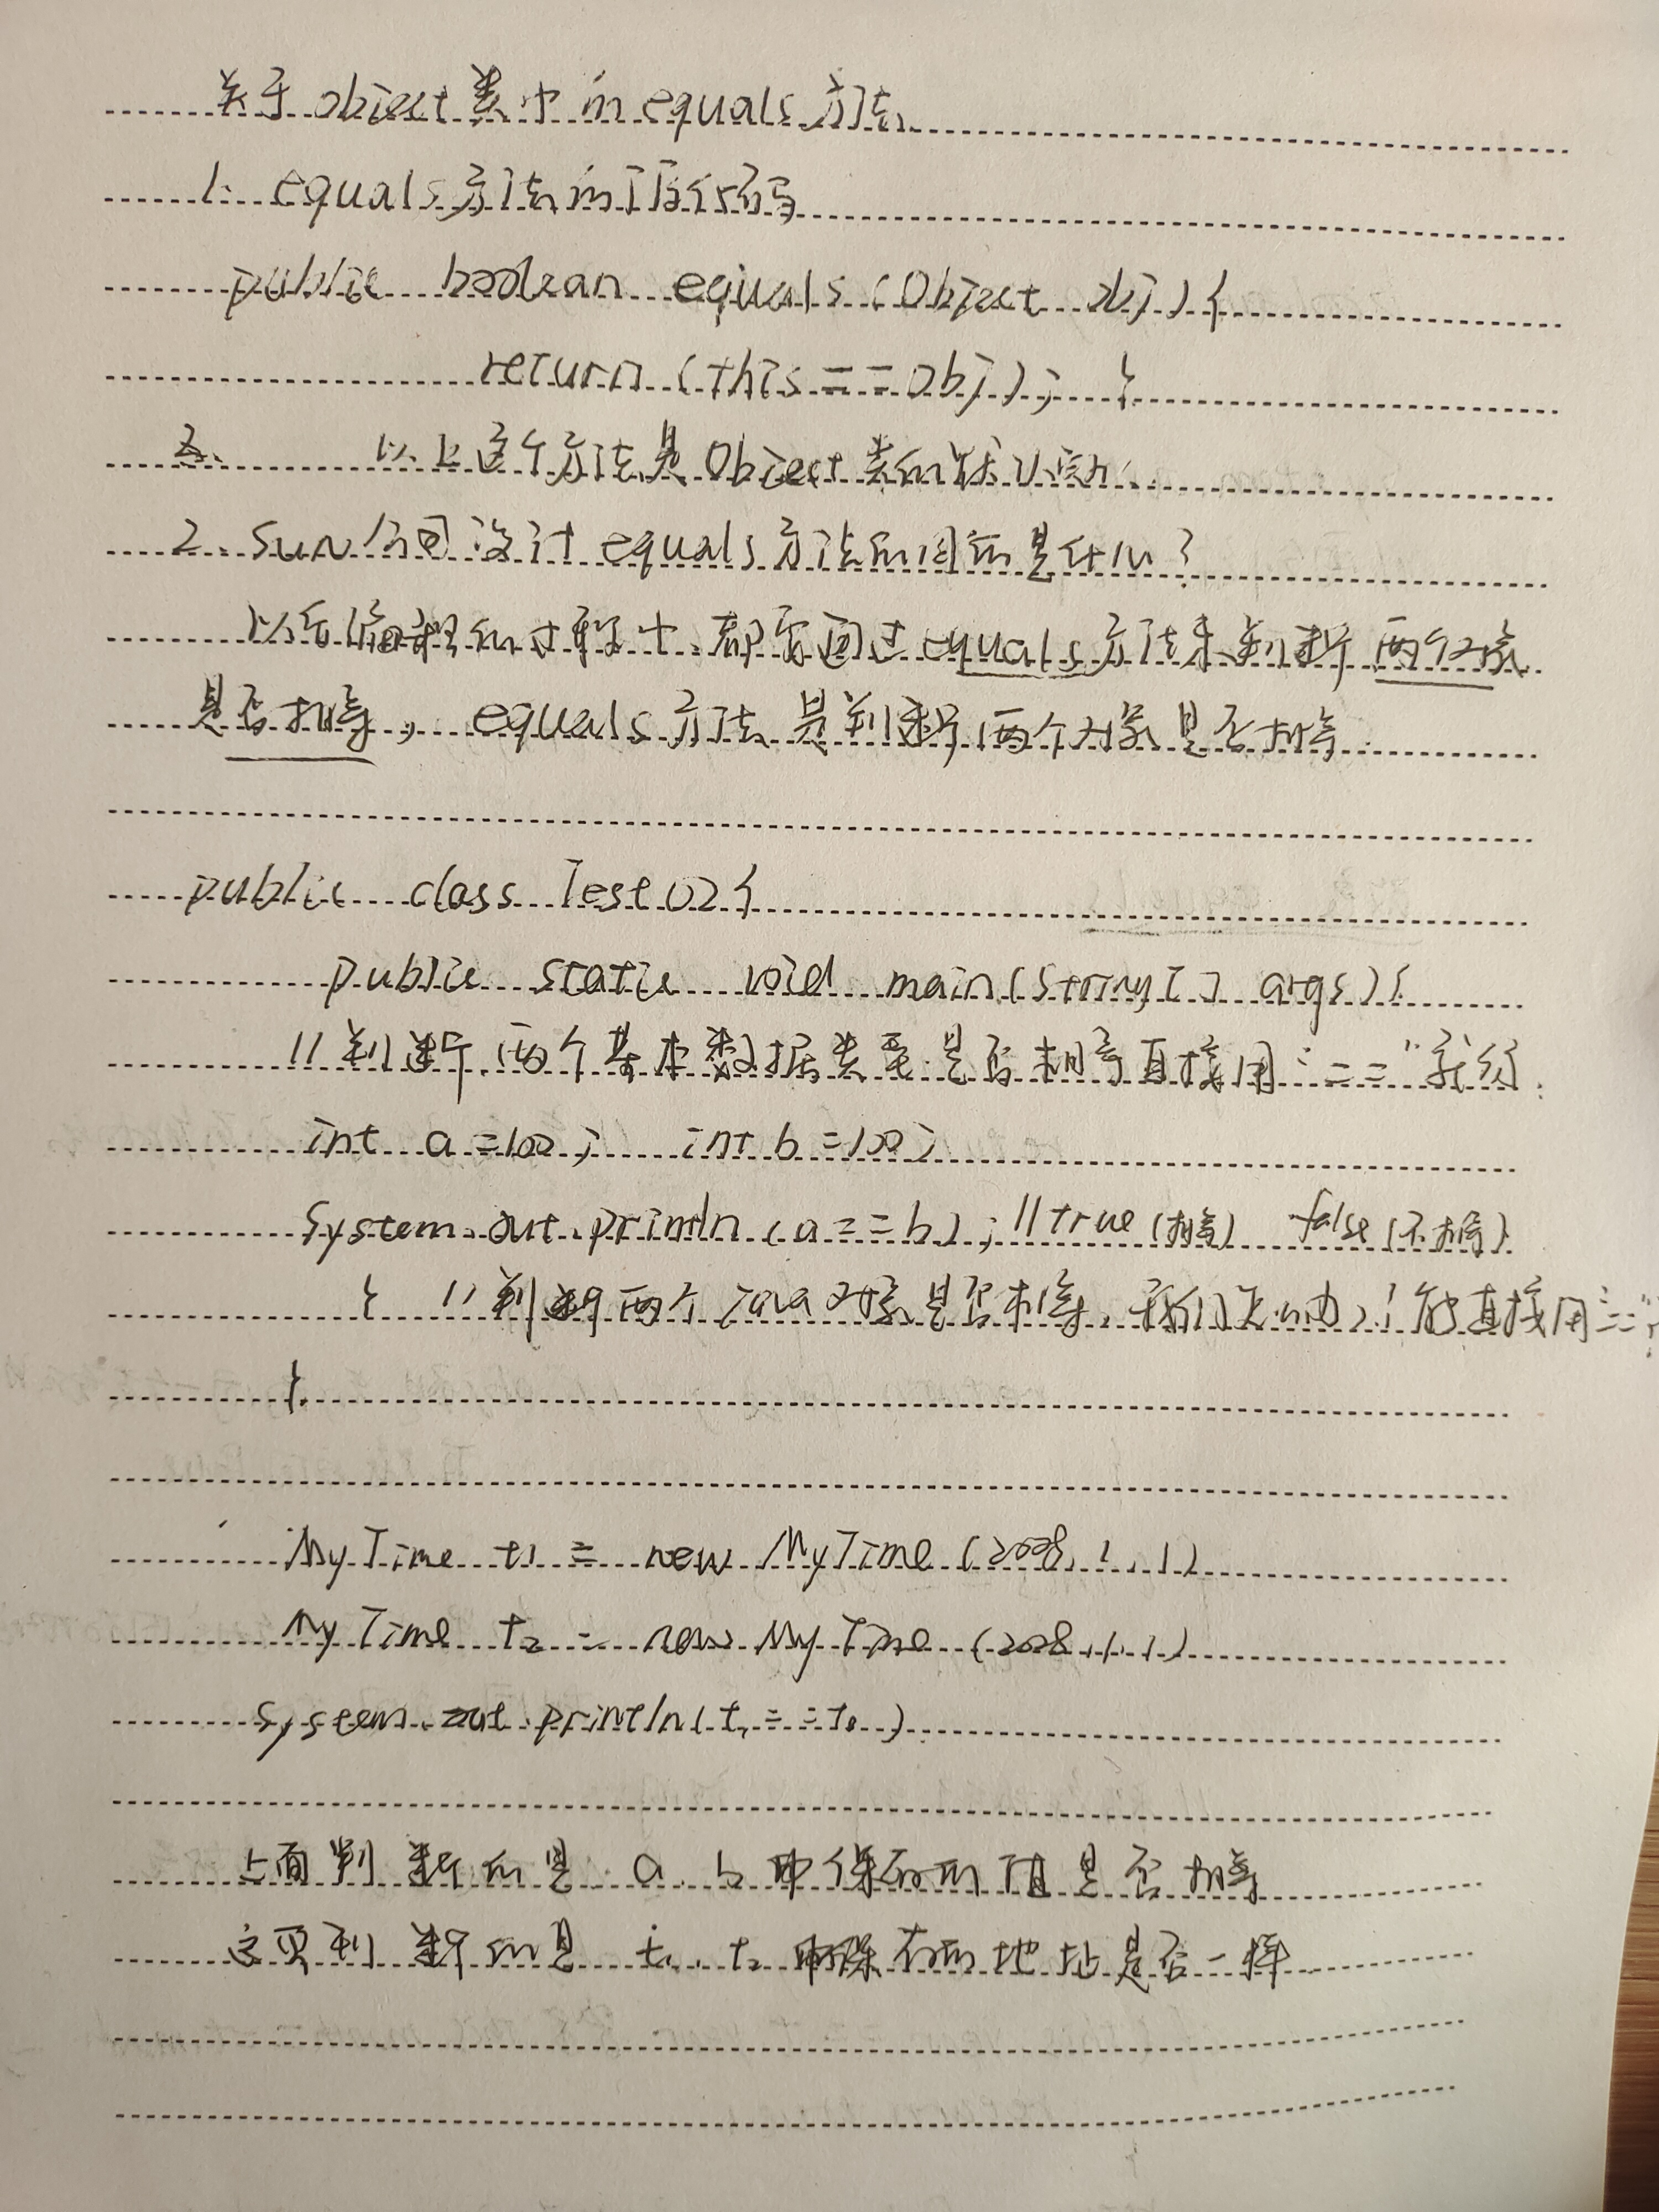 关于object类中的equals方法
1. equals方法的源代码
public boolean equals(Object obj){
return (this==obj); }
以上这个方法是Object类的默认实现
2. Sun公司设计equals方法的目的是什么?
以后编程的过程中,都要通过equals方法来判断两个对象
是否相等, equals方法是判断两个对象是否相等
public class Test02{
public static void main(String[] args){
//判断两个基本数据类型是否相等直接用"=="就行.
int a=100; int b=100;
System.out.println(a==b); //true(相等) false(不相等)
} //判断两个Java对象是否相等,我们 能直接用"=="
}
MyTime t1 = new MyTime(2008,1,1)
MyTime t2 = new MyTime(2008,1,1)
System.out.println(t1==t2)
上面判断的是a、b中保存的值是否相等
这里判断的是t1、t2中保存的地址是否一样